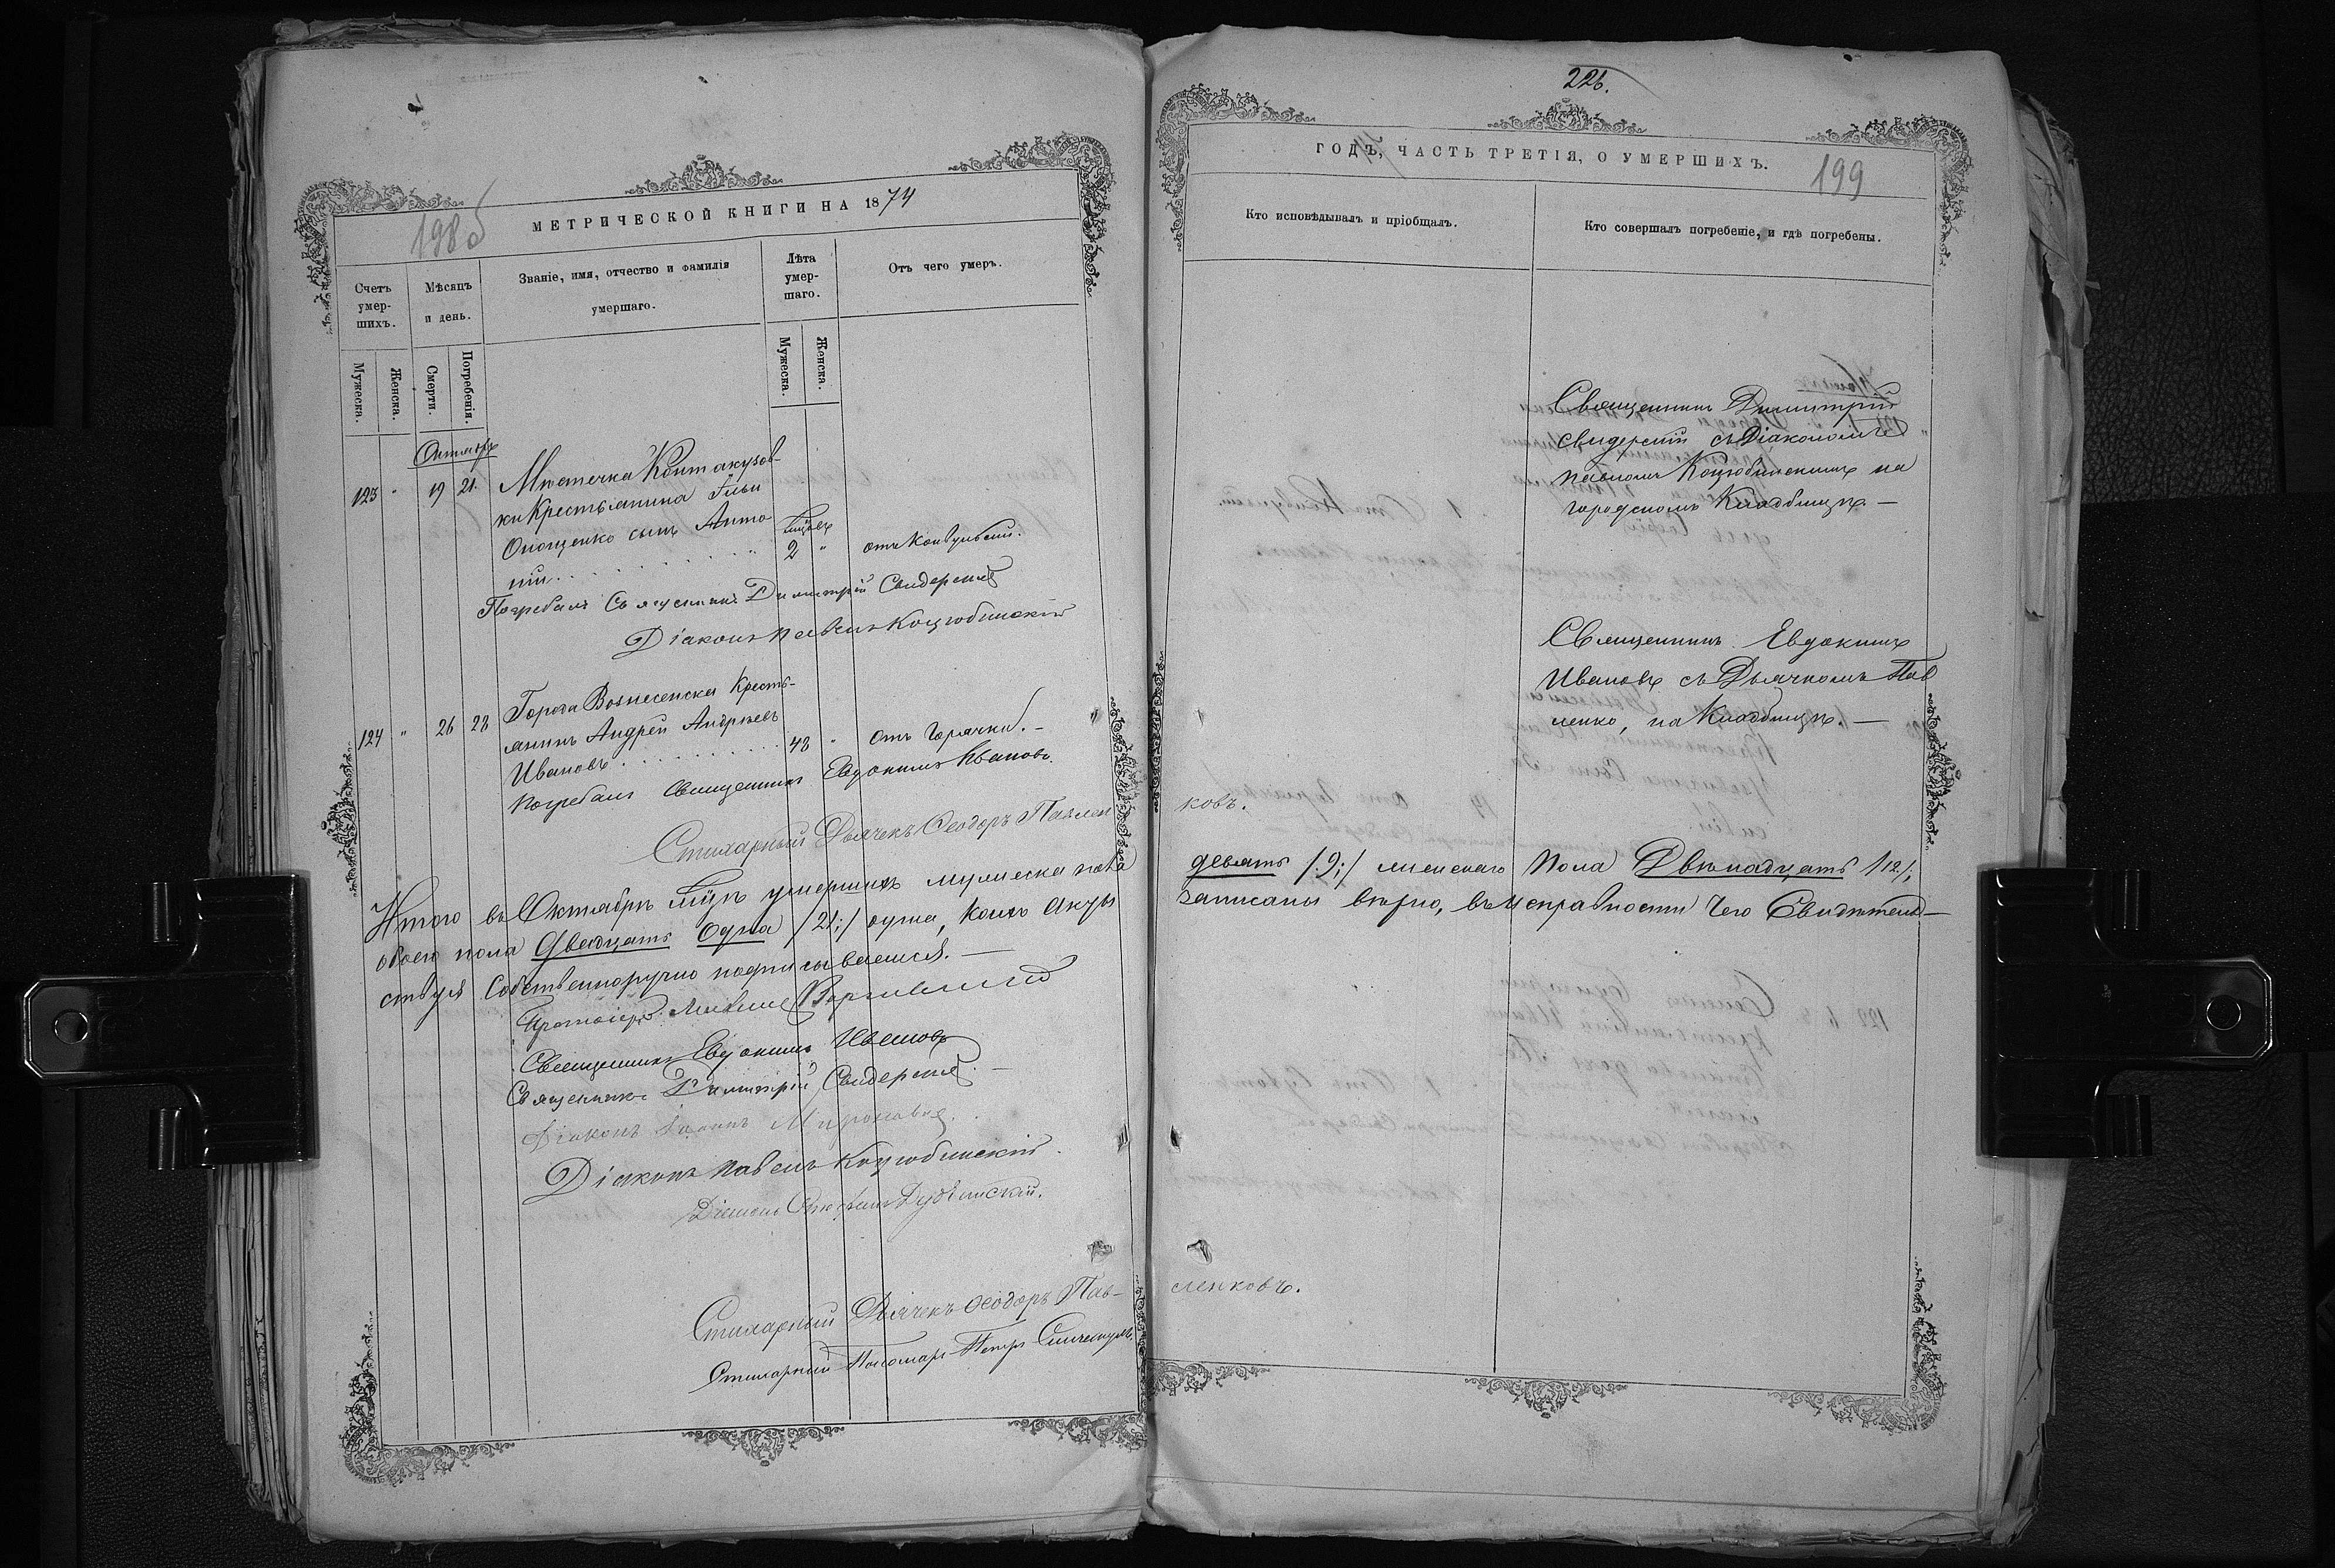 198 об
МЕТРИЧЕСКОЙ КНИГИ НА 1874
Счетъ умер-шихъ.
Мѣсяцъ и день.
Званіе, имя, отчество и фамилія умершаго.
Лѣта умер-шаго.
Отъ чего умеръ.
Мужеска.
Женска.
Смерти.
Погребенія.
Мужеска.
Женска.
Октябрь
123 " 19 21. Мѣстечка Кантакузов-
ки Крестьянина Ильи
Онощенко сынъ Анто
ній . . . . . . . . мѣсяцъ 2 " отъ Конвульсіи.
Погребалъ Священникъ Димитрій Свидерскій
Діаконъ Павелъ Коцюбинскій
124 " 26 28 Города Вознесенска Кресть-
янинъ Андрей Андреевъ
Ивановъ . . . . . . . . 48 " Отъ Горячки. - "
Погребалъ Священникъ Евдокимъ Ивановъ.
Стихарный Дьячекъ Ѳеодоръ Павлен
Итого въ Октябрѣ мцѣ умершихъ мужеска пола
обоего пола Двадцать Одна /:21:/ душа, коихъ Акты
ствуя Собственноручно подписываемся. —
Протоіерей
Священникъ Евдокимъ Ивановъ
Священникъ Димитрій Свидерскій. -
Діаконъ Іоаннъ Мироновичъ.
Діаконъ Павелъ Коцюбинскій.
Діаконъ
Стихарный Дьячекъ Ѳеодоръ Пав-
Стихарный Пономарь Петръ
226.
ГОДЪ, ЧАСТЬ ТРЕТІЯ, О УМЕРШИХЪ.
199
Кто исповѣдывалъ и пріобщалъ.
Кто совершалъ погребеніе, и гдѣ погребены.
Священникъ Димитрій
Свидерскій съ Діакономъ
Павломъ Коцюбинскимъ на
городскомъ Кладбищѣ. —
Священникъ Евдокимъ
Ивановъ съ Дьячкомъ Пав
ленко, на Кладбищѣ. —
ковъ.
девять /:9:/ женскаго Пола Двѣнадцать /12/;
записаны вѣрно, въ исправности чего Свидѣтель—
ленковъ.